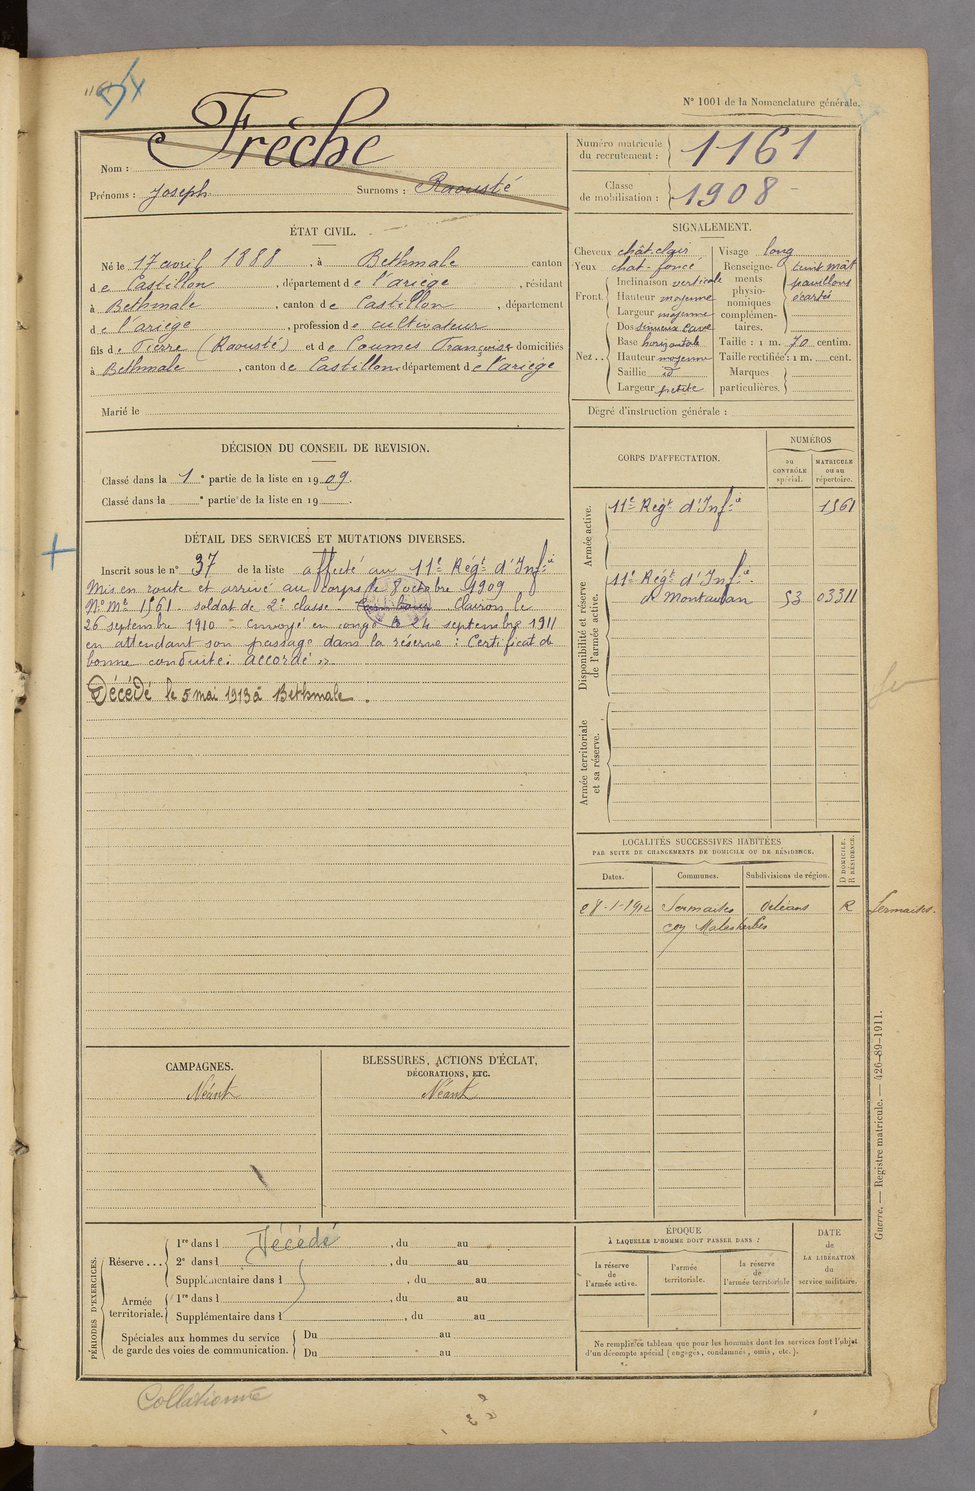 1161
N° 1001 de la Nomenclature générale.
Nom : Frèche
Prénoms : Joseph Surnoms : Raousté
Numéro matricule du recrutement : 1161
Classe de mobilisation : 1908
ÉTAT CIVIL.
Né le 17 avril 1888, à Bethmale canton
de Castillon, département de l'ariège, résidant
à Bethmale, canton de Castillon, département
de l'ariège, profession de cultivateur
fils de Pierre (Raousté) et de Coumes Françoise domiciliés
à Bethmale, canton de Castillon département de l'ariège
Marié le
SIGNALEMENT.
Cheveux chât-clair
Yeux chat-foncé
Front. Inclinaison verticale
Hauteur moyenne
Largeur moyenne
Nez.. Dos sinueux cave
Base horizontale
Hauteur moyenne
Saillie id
Largeur petite
Visage long
Renseignements physionomiques complémentaires. teint mât
pavillons
écartés
Taille : 1 m. 70 centim.
Taille rectifiée : 1 m. cent.
Marques particulières.
Degré d'instruction générale :
DÉCISION DU CONSEIL DE REVISION.
Classé dans la 1e partie de la liste en 1909.
Classé dans la e partie de la liste en 19 .
DÉTAIL DES SERVICES ET MUTATIONS DIVERSES.
Inscrit sous le n° 37 de la liste affecté au 11e Régt d'Infie
Mis en route et arrivé au corps le 8 octobre 1909
N° Mle 1561. soldat de 2e classe. Clairon le
26 septembre 1910 - Envoyé en congé le 24 septembre 1911
en attendant son passage dans la réserve : Certificat de
bonne conduite : accordé
Décédé le 5 mai 1913 à Bethmale.
CORPS D'AFFECTATION.
NUMÉROS
au CONTRÔLE spécial.
MATRICULE ou au répertoire.
Armée active.
11e Régt d'Infie 1561
Disponibilité et réserve de l'armée active.
11e Régt d'Infie
de Montauban 53 03311
Armée territoriale et sa réserve.
LOCALITÉS SUCCESSIVES HABITÉES
PAR SUITE DE CHANGEMENTS DE DOMICILE OU DE RÉSIDENCE.
Dates. Communes. Subdivisions de région. D DOMICILE. R RÉSIDENCE.
28-1-1912 Sermaises Orléans R Sermaises.
con Malesherbes
CAMPAGNES.
Néant
BLESSURES, ACTIONS D'ÉCLAT,
DÉCORATIONS, ETC.
Néant
PÉRIODES D'EXERCICES.
Réserve ... 1re dans l Décédé, du au
2e dans l , du au
Supplémentaire dans l , du au
Armée territoriale. 1re dans l , du au
Supplémentaire dans l , du au
Spéciales aux hommes du service
de garde des voies de communication. Du au
Du au
ÉPOQUE
À LAQUELLE L'HOMME DOIT PASSER DANS :
la réserve de l'armée active.
l'armée territoriale.
la réserve de l'armée territoriale
DATE de LA LIBÉRATION du service militaire.
Ne remplir ce tableau que pour les hommes dont les services font l'objet
d'un décompte spécial (engagés, condamnés, omis, etc.).
Guerre. — Registre matricule. — 426-89-1911.
Collationné